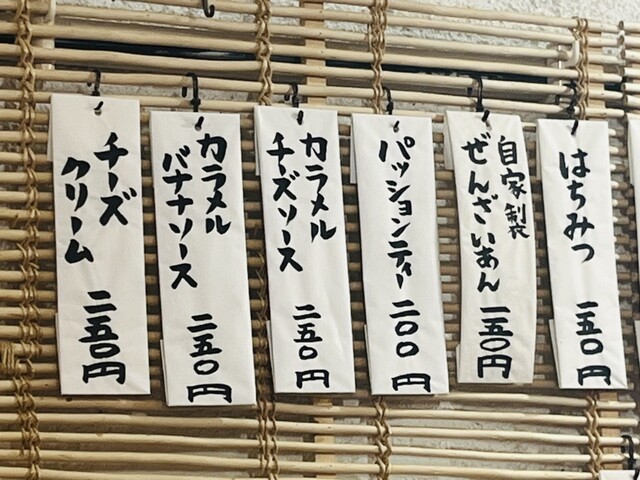 はちみつ
一五〇円
自家製
ぜんざいあん
一五〇円
パッションティー
二〇〇円
カラメル
チーズソース
二五〇円
カラメル
バナナソース
二五〇円
チーズ
クリーム
二五〇円